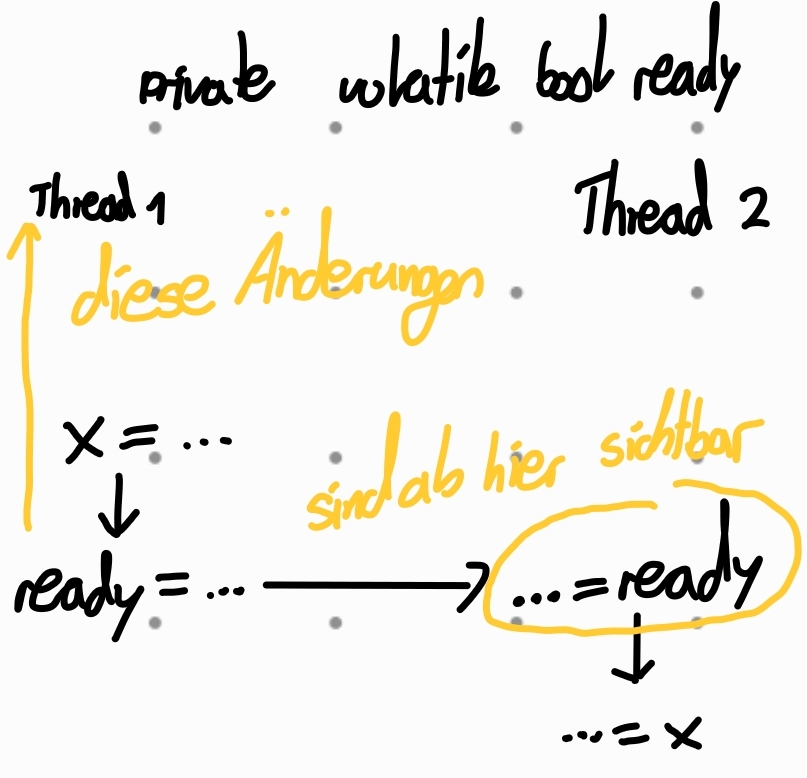 private volatile bool ready
Thread 1 Thread 2
diese Änderungen
x = ...
sind ab hier sichtbar
ready = ... ... = ready
... = x